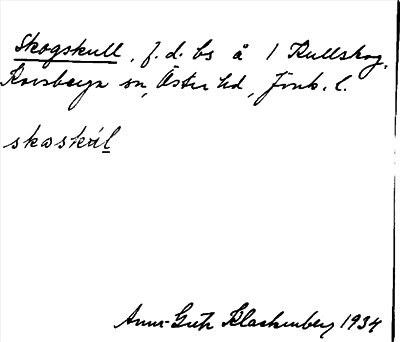 Skogskull, f.d. bs å 1 Kullskog,
Korsberga sn, Östra hd, Jönk. l.
skoskúl
Anna-Greta Klackenberg 1934